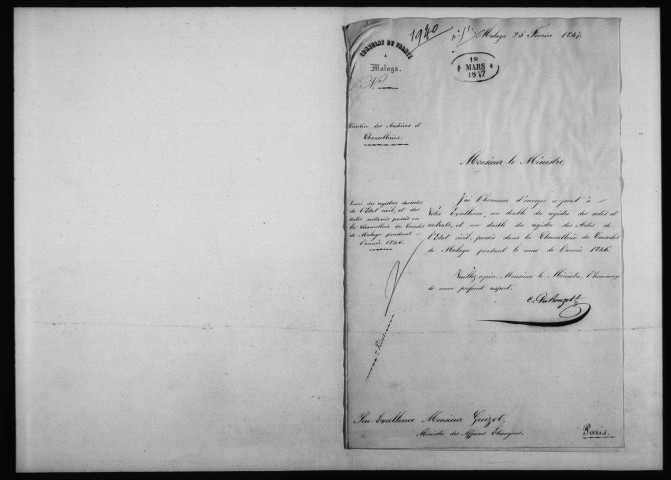 1940
Malaga 25 Février 1847.
CONSULAT DE FRANCE
A
Malaga.
N.
18
MARS
1847
Direction des Archives et
Chancelleries.
Monsieur le Ministre,
Envoi des registres
de l'Etat civil, et des
actes notariés passés en
la Chancellerie du Consulat
de Malaga pendant
l'année 1846.
J'ai l'honneur d'envoyer ci-joint à
Votre Excellence, un double du registre des actes et
contrats, et un double du registre des Actes de
l'Etat civil, passés dans la Chancellerie du Consulat
de Malaga pendant le cours de l'année 1846.
Veuillez agréer, Monsieur le Ministre, l'hommage
de mon profond respect.
Son Excellence Monsieur Guizot,
Ministre des Affaires Etrangères.
Paris.